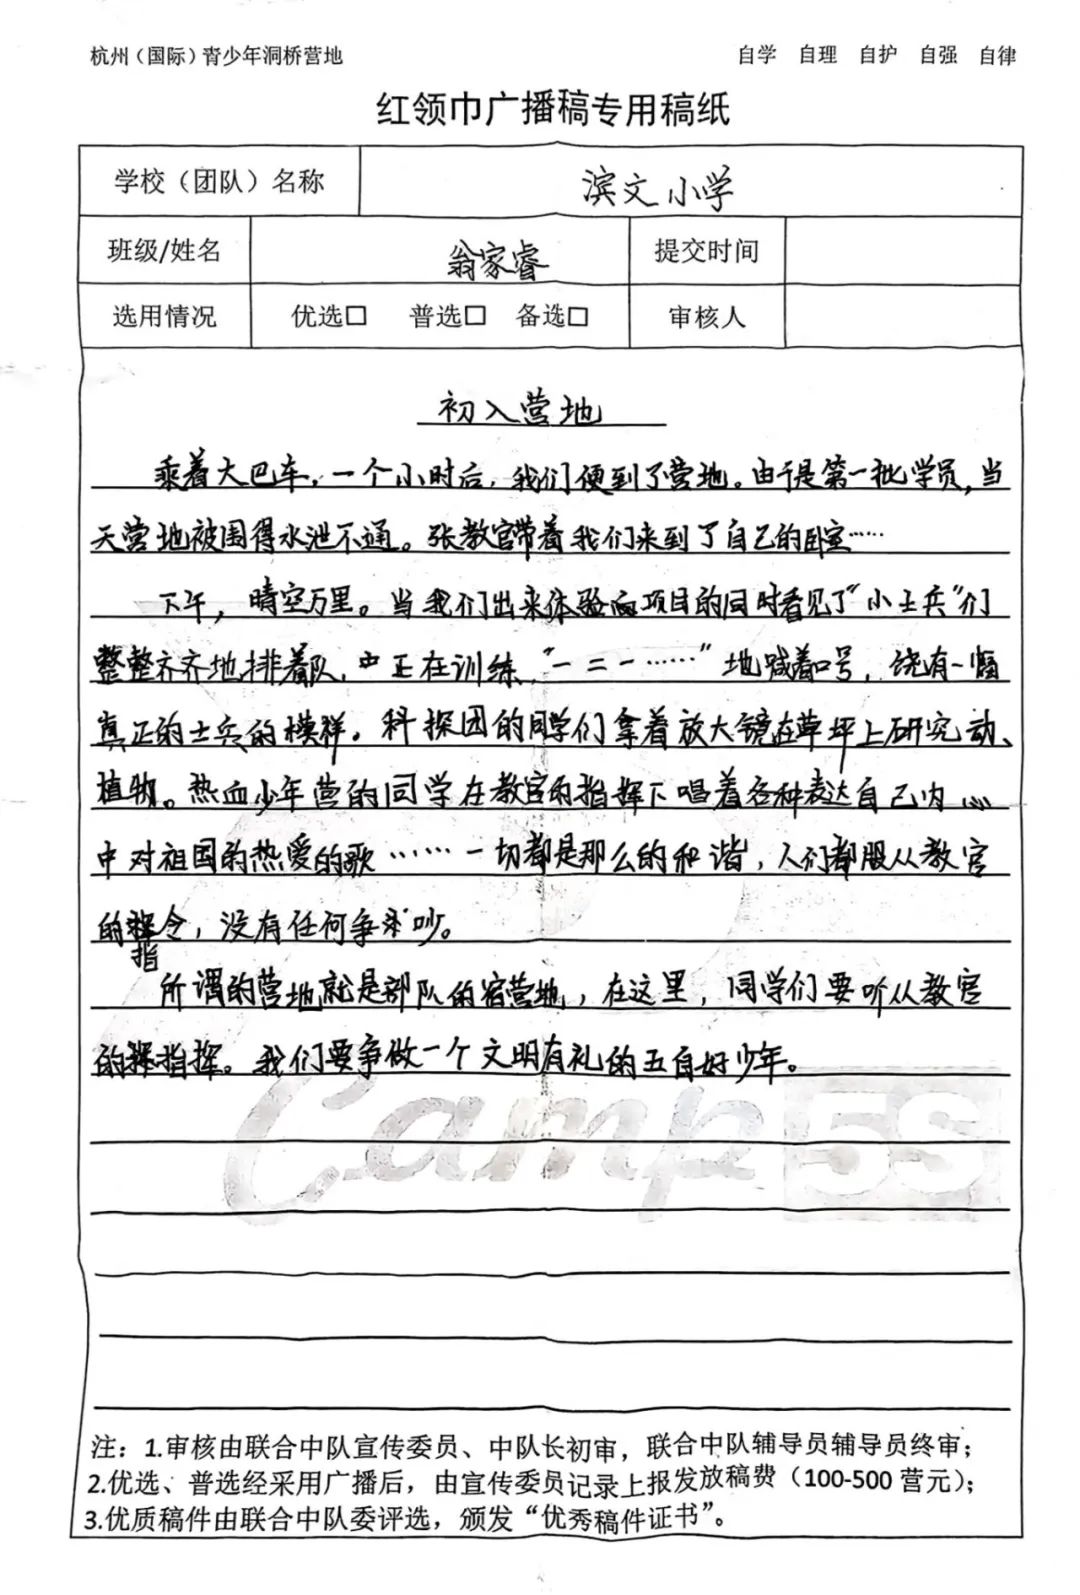 杭州（国际）青少年洞桥营地 自学 自理 自护 自强 自律
红领巾广播稿专用稿纸
学校（团队）名称 滨文小学
班级/姓名 翁家睿 提交时间
选用情况 优选□ 普选□ 备选□ 审核人
初入营地
乘着大巴车，一个小时后，我们便到了营地。由于是第一批学员，当
天营地被围得水泄不通。张教官带着我们来到了自己的卧室……
下午，晴空万里。当我们出来体验项目的同时看见了“小士兵”们
整整齐齐地排着队，正在训练，“一二一……”地喊着口号，饶有一幅
真正的士兵的模样。科探团的同学们拿着放大镜在草坪上研究动、
植物。热血少年营的同学在教官的指挥下唱着各种表达自己内心
中对祖国的热爱的歌……一切都是那么的和谐，人们都服从教官
的指令，没有任何争吵。
所谓的营地就是部队的宿营地，在这里，同学们要听从教官
的指挥。我们要争做一个文明有礼的五自好少年。
Camp 5S
注：1.审核由联合中队宣传委员、中队长初审，联合中队辅导员辅导员终审；
2.优选、普选经采用广播后，由宣传委员记录上报发放稿费（100-500 营元）；
3.优质稿件由联合中队委评选，颁发“优秀稿件证书”。